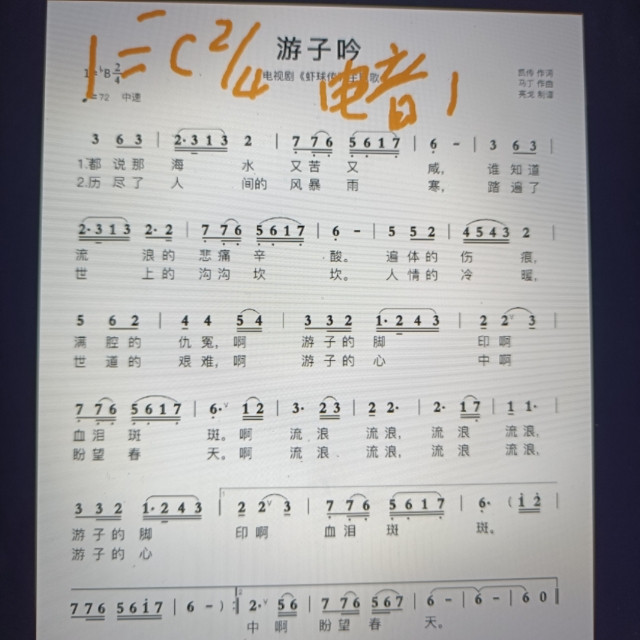 游子吟
1=C 2/4 电音1
1=♭B 2/4
电视剧《虾球传》主题歌
凯传 作词
马丁 作曲
♩=72 中速
3 6 3 | 2·3 1 3 2 | 7 7 6 5 6 1 7 | 6 - | 3 6 3 |
1.都 说那 海 水 又苦 又 咸, 谁 知道
2.历 尽了 人 间的 风暴 雨 寒, 踏 遍了
2·3 1 3 2·2 | 7 7 6 5 6 1 7 | 6 - | 5 5 2 | 4 5 4 3 2 |
流 浪的 悲痛 辛 酸。 遍 体的 伤 痕,
世 上的 沟沟 坎 坎。 人 情的 冷 暖,
5 6 2 | 4 4 5 4 | 3 3 2 1·2 4 3 | 2 2 3 |
满 腔的 仇 冤, 啊 游 子的 脚 印 啊
世 道的 艰 难, 啊 游 子的 心 中 啊
7 7 6 5 6 1 7 | 6· 1 2 | 3· 2 3 | 2 2· | 2· 1 7 | 1 1· |
血 泪 斑 斑。 啊 流 浪 流 浪, 流 浪 流 浪,
盼 望 春 天。 啊 流 浪 流 浪, 流 浪 流 浪,
3 3 2 1·2 4 3 | 2 2 3 | 7 7 6 5 6 1 7 | 6· ( 1 2 |
游 子 的 脚 印 啊 血 泪 斑 斑。
游 子 的 心
7 7 6 5 6 1 7 | 6 - ) :| 2· 5 6 | 7 7 6 5 6 7 | 6 - | 6 - | 6 0 ‖
中 啊 盼 望 春 天。